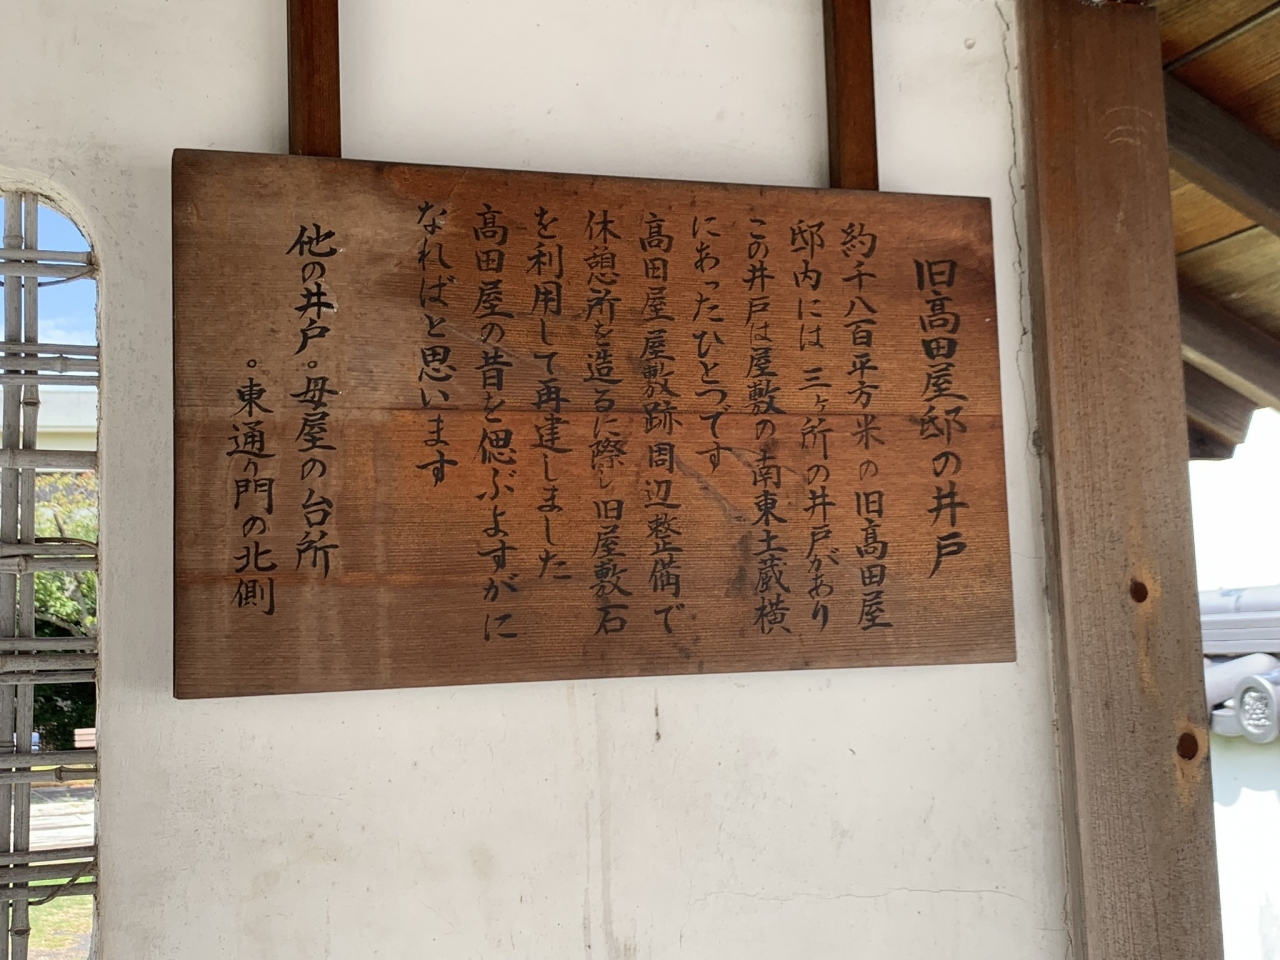 旧髙田屋邸の井戸
約千八百平方米の旧髙田屋
邸内には三ヶ所の井戸があり
この井戸は屋敷の南東土蔵横
にあったひとつです
髙田屋屋敷跡周辺整備で
休憩所を造るに際し旧屋敷石
を利用して再建しました
髙田屋の昔を偲ぶよすがに
なればと思います
他の井戸。母屋の台所
。東通り門の北側